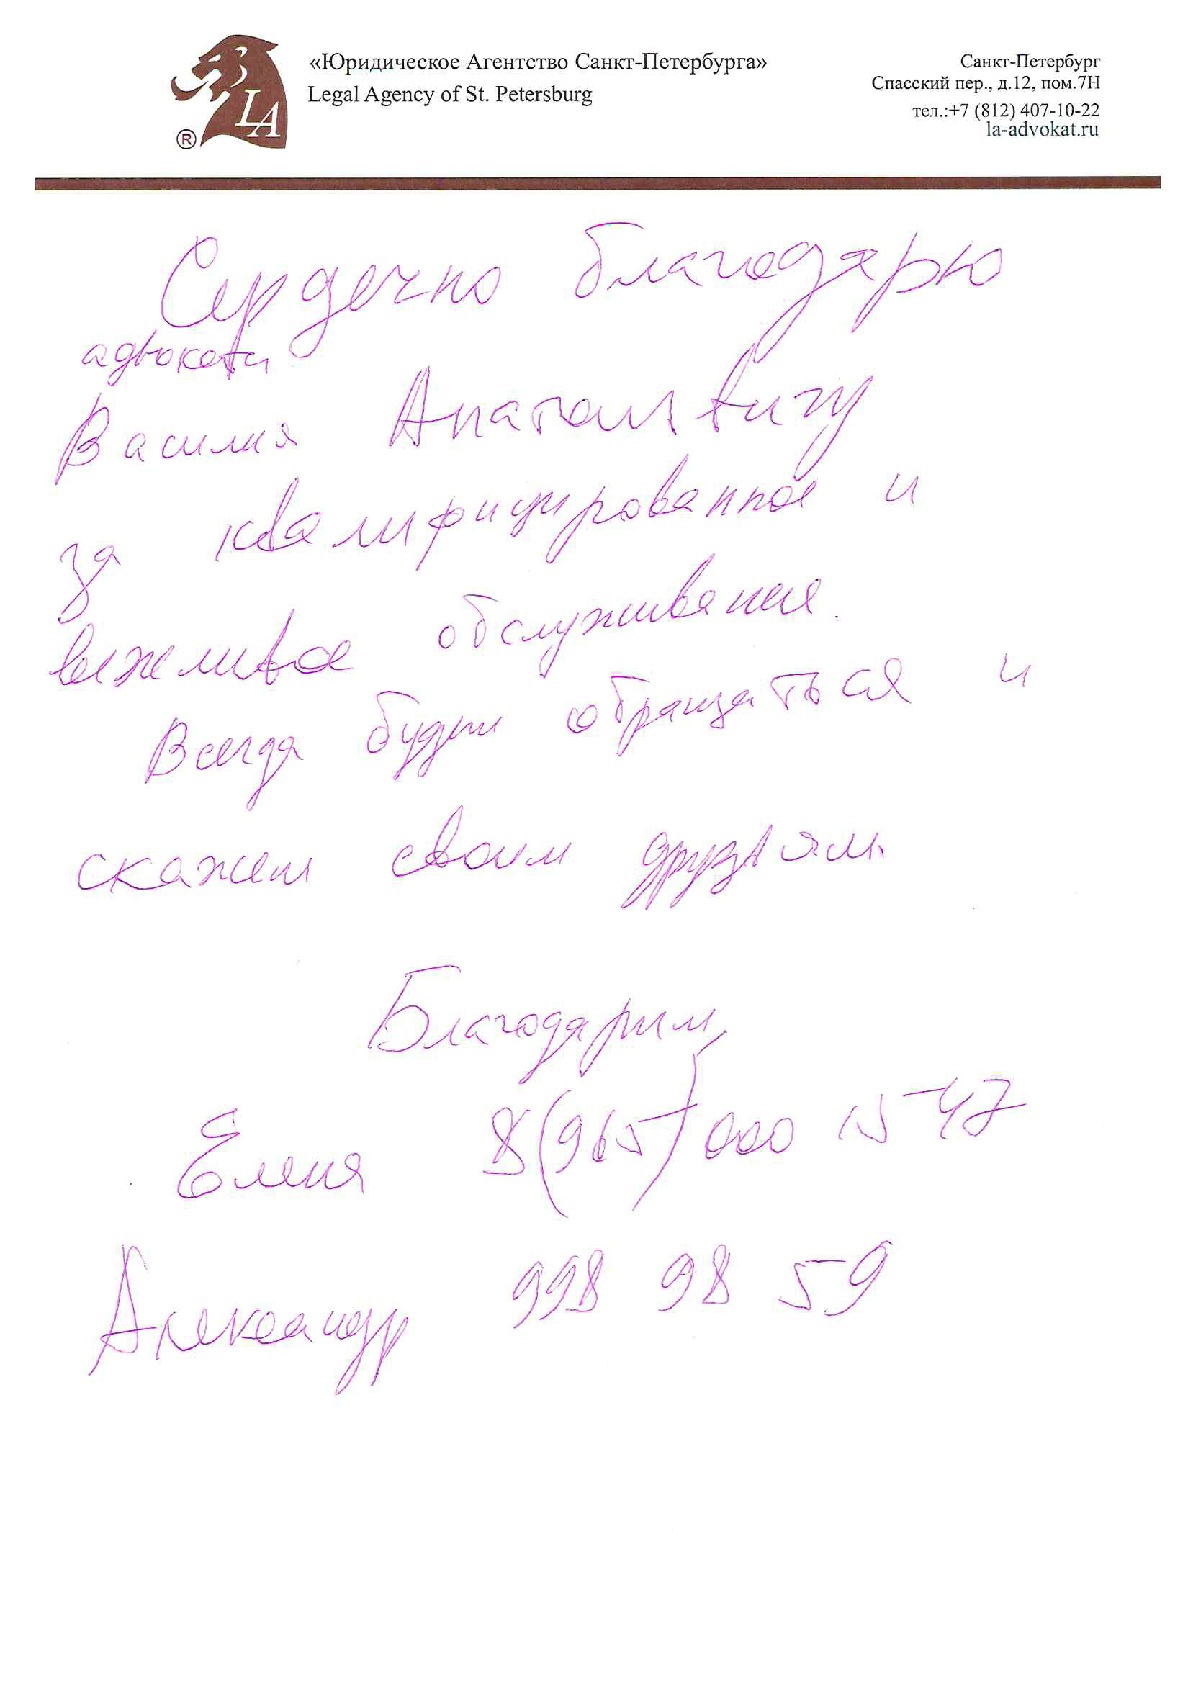 «Юридическое Агентство Санкт-Петербурга»
Legal Agency of St. Petersburg
Санкт-Петербург
Спасский пер., д.12, пом.7Н
тел.:+7 (812) 407-10-22
la-advokat.ru
LA
®
Сердечно благодарю
адвоката
Василия Анатольевичу
за квалифицированное и
вежливое обслуживание.
Всегда будем обращаться и
скажем своим друзьям.
Благодарим,
Елена 8(965)000 15-47
Александр 998 98 59